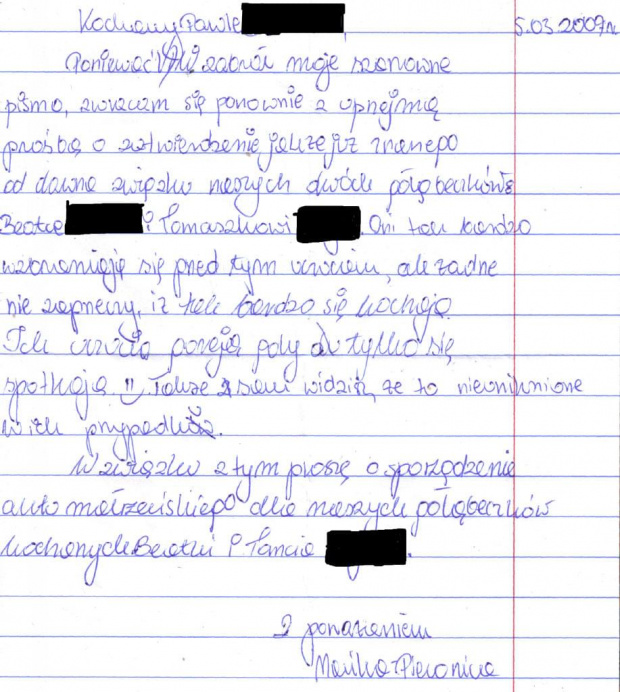 Kochany Pawle 5.03.2009r
Ponieważ zabrał moje szanowne
pismo, zwracam się ponownie z uprejmią
prośbą o zatwierdzenie jakże już znanego
od dawna związku naszych dwóch gołąbeczków
Beatce i Tomaszkowi . Oni tak bardzo
wzbraniają się przed tym uczuciem, ale żadne
nie zaprzeczy, iż tak bardzo się kochają.
Ich uczucia poreją gdy tylko się
spotkają !! Także sam widzisz, że to nieuniknione
w ich przypadku.
W związku z tym proszę o sporządzenie
aktu małżeńskiego dla naszych gołąbeczków
kochanych Beatki i Tomcia .
Z poważaniem
Marika